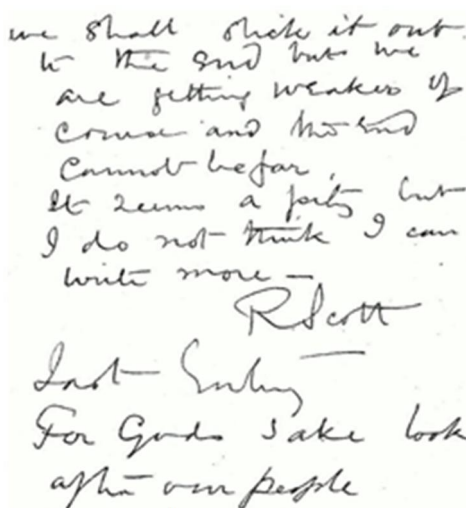 we shall stick it out
to the end but we
are getting weaker of
course and the end
cannot be far.
It seems a pity but
I do not think I can
write more —
R Scott
Last Entry
For Gods sake look
after our people